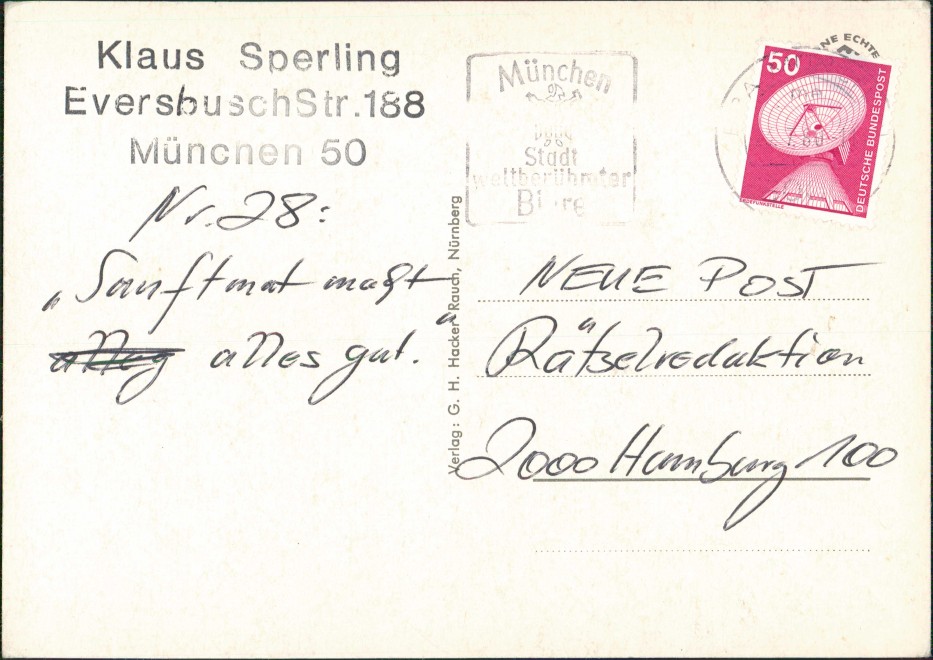 Klaus Sperling
EversbuschStr. 188
München 50
Nr. 28:
„Sanftmut macht
alles gut.“
Verlag: G. H. Hacker Rauch, Nürnberg
München
Stadt
weltberühmter
Biere
NE ECHTE
50
DEUTSCHE BUNDESPOST
ERDEFUNKSTELLE
NEUE POST
Rätselredaktion
2000 Hamburg 100